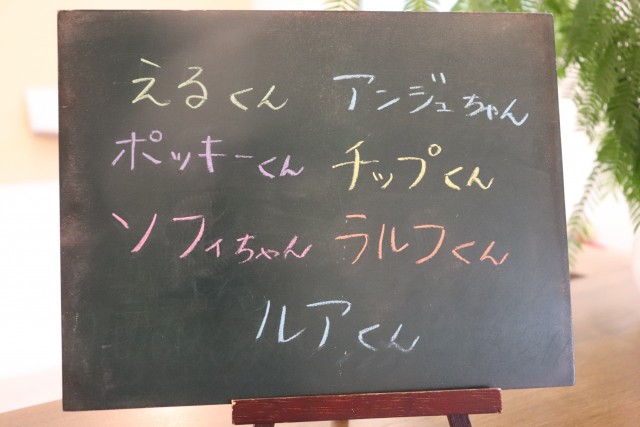 えるくん アンジュちゃん
ポッキーくん チップくん
ソフィちゃん ラルフくん
ルアくん